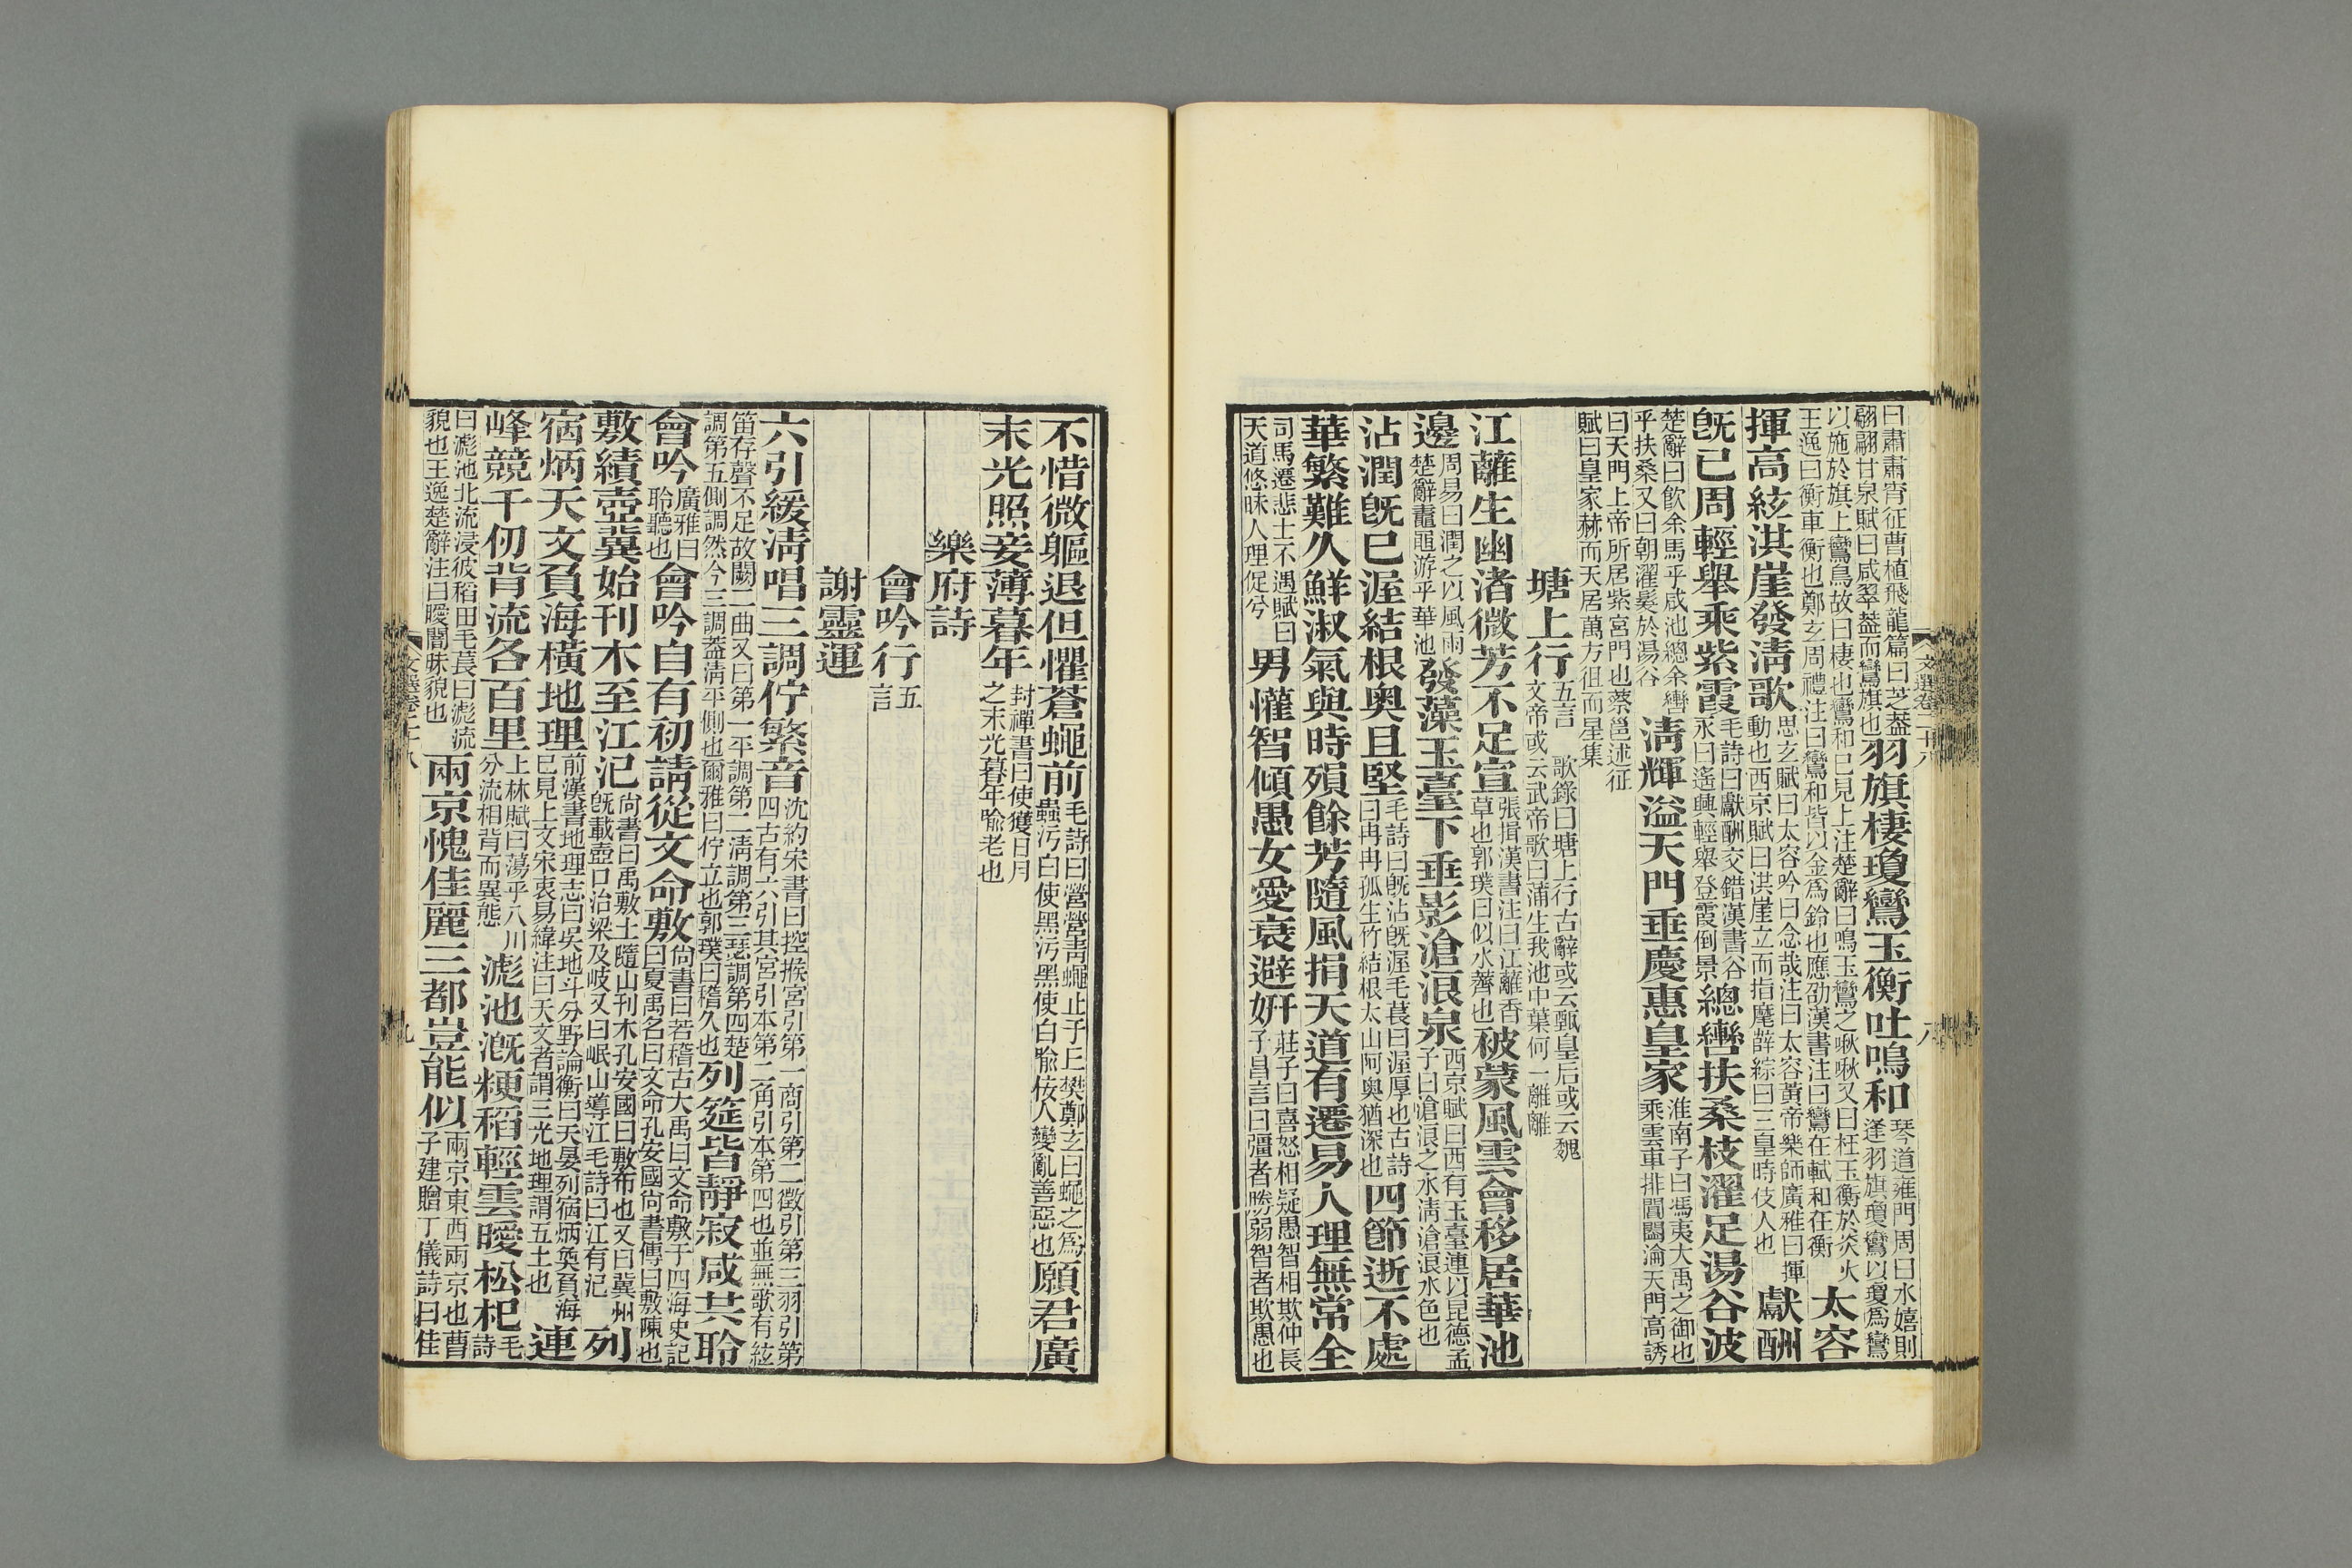 曰肅肅宵征曹植飛龍篇曰芝葢
翩翩甘泉賦曰咸翠葢而鸞旗也
羽旗棲瓊鸞玉衡吐鳴和
琴道雍門周曰水嬉則
逢羽旗瓊鸞以瓊爲鸞
以施於旗上鸞鳥故曰棲也鸞和已見上注楚辭曰鳴玉鸞之啾啾又曰枉玉衡於炎火
王逸曰衡車衡也鄭玄周禮注曰鸞和皆以金爲鈴也應劭漢書注曰鸞在軾和在衡
太容
揮高絃洪崖發淸歌
思玄賦曰太容吟曰念哉注曰太容黃帝樂師廣雅曰揮
動也西京賦曰洪崖立而指麾薛綜曰三皇時伎人也
獻酬
旣已周輕舉乘紫霞
毛詩曰獻酬交錯漢書谷
永曰遙興輕舉登霞倒景
總轡扶桑枝濯足湯谷波
楚辭曰飲余馬乎咸池總余轡
乎扶桑又曰朝濯髮於湯谷
淸輝溢天門垂慶惠皇家
淮南子曰馮夷大禹之御也
乘雲車排閶闔淪天門高誘
曰天門上帝所居紫宮門也蔡邕述征
賦曰皇家赫而天居萬方徂而星集
塘上行
五言　歌錄曰塘上行古辭或云甄皇后或云魏
文帝或云武帝歌曰蒲生我池中葉何一離離
江蘺生幽渚微芳不足宣
張揖漢書注曰江蘺香
草也郭璞曰似水薺也
被蒙風雲會移居華池
邊
周易曰潤之以風雨
楚辭䵷黽游乎華池
發藻玉臺下垂影滄浪泉
西京賦曰西有玉臺連以昆德孟
子曰滄浪之水淸滄浪水色也
沾潤旣已渥結根奧且堅
毛詩曰旣沾旣渥毛萇曰渥厚也古詩
曰冉冉孤生竹結根太山阿奧猶深也
四節逝不處
華繁難久鮮淑氣與時殞餘芳隨風捐天道有遷易人理無常全
司馬遷悲士不遇賦曰
天道悠昧人理促兮
男懽智傾愚女愛衰避妍
莊子曰喜怒相疑愚智相欺仲長
子昌言曰彊者勝弱智者欺愚也
文選卷二十八
八
不惜微軀退但懼蒼蠅前
毛詩曰營營靑蠅止于樊鄭玄曰蠅之爲
蟲汚白使黑汚黑使白喻佞人變亂善惡也
願君廣
末光照妾薄暮年
封禪書曰使獲日月
之末光暮年喻老也
樂府詩
會吟行
五言
謝靈運
六引緩淸唱三調佇繁音
沈約宋書曰控揬宮引第一商引第二徵引第三羽引第
四古有六引其宮引本第二角引本第四也並無歌有絃
笛存聲不足故闕二曲又曰第一平調第二淸調第三瑟調第四楚
調第五側調然今三調葢淸平側也爾雅曰佇立也郭璞曰稽久也
列筵皆靜寂咸共聆
會吟
廣雅曰
聆聽也
會吟自有初請從文命敷
尙書曰若稽古大禹曰文命敷于四海史記
曰夏禹名曰文命孔安國尙書傳曰敷陳也
敷績壺冀始刊木至江汜
尙書曰禹敷土隨山刊木孔安國曰敷布也又曰冀州
旣載壺口治梁及岐又曰岷山導江毛詩曰江有汜
列
宿炳天文負海橫地理
前漢書地理志曰吳地斗分野論衡曰天晏列宿炳奐負海
已見上文宋衷易緯注曰天文者謂三光地理謂五土也
連
峰競千仞背流各百里
上林賦曰蕩乎八川
分流相背而異態
滮池漑粳稻輕雲曖松杞
毛詩
曰滮池北流浸彼稻田毛萇曰滮流
貌也王逸楚辭注曰曖闇昧貌也
兩京愧佳麗三都豈能似
兩京東西兩京也曹
子建贈丁儀詩曰佳
文選卷二十八
九